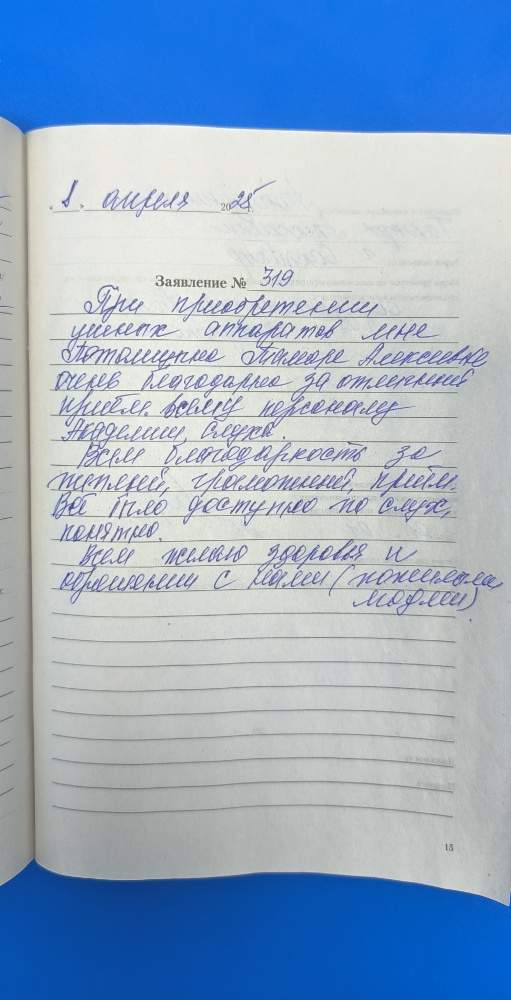 « 1 » апреля 2025
Заявление № 319
При приобретении
ушных аппаратов мне
Тамаре Алексеевне
очень благодарна за отличный
приём всему персоналу
Академии Слуха.
Всем благодарность за
теплый, грамотный, приём.
Всё было доступно по слух,
понятно.
Всем желаю здоровья и
с нами (пожилыми
людми)
15